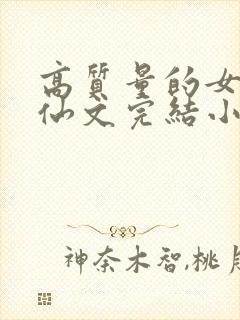 高質量的女
仙文完結小
神奈木智,桃